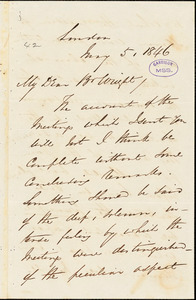 42
London
May 5, 1846
GARRISON
MSS.
My Dear Br Wright,
The account of the
Meetings which I sent You
will not I think be
Complete without Some
Concluding Remarks.
Something Should be Said
of the deep, solemn, in-
tense feeling by which the
Meeting were distinguished
of the peculiar aspect